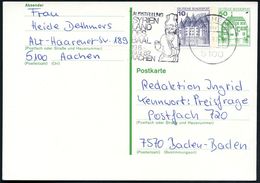 Absender
Frau
Heide Dethmers
Alt-Haarener Str. 189
(Postfach oder Straße und Hausnummer)
5100 Aachen
(Postleitzahl) (Ort)
AUSSTELLUNG
SYRIEN
LAND
BAAL
AACHEN
10
DEUTSCHE BUNDESPOST
Postkarte
Redaktion Ingrid
Kennwort: Preisfrage
Postfach 720
(Postfach oder Straße und Hausnummer)
7570 Baden-Baden
(Postleitzahl) (Bestimmungsort)